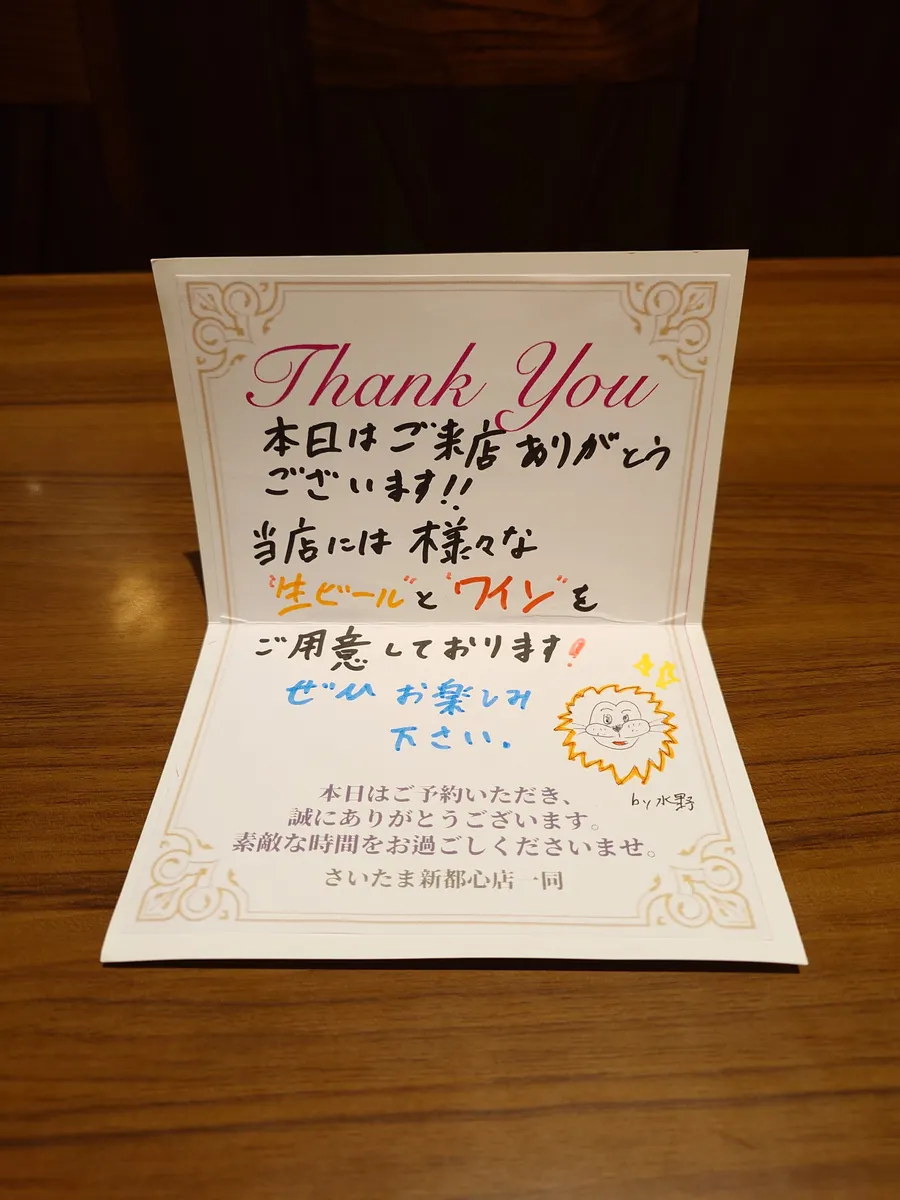 Thank You
本日はご来店ありがとう
ございます!!
当店には様々な
"生ビール"と"ワイン"を
ご用意しております!
ぜひお楽しみ
下さい.
by水野
本日はご予約いただき、
誠にありがとうございます。
素敵な時間をお過ごしくださいませ。
さいたま新都心店一同